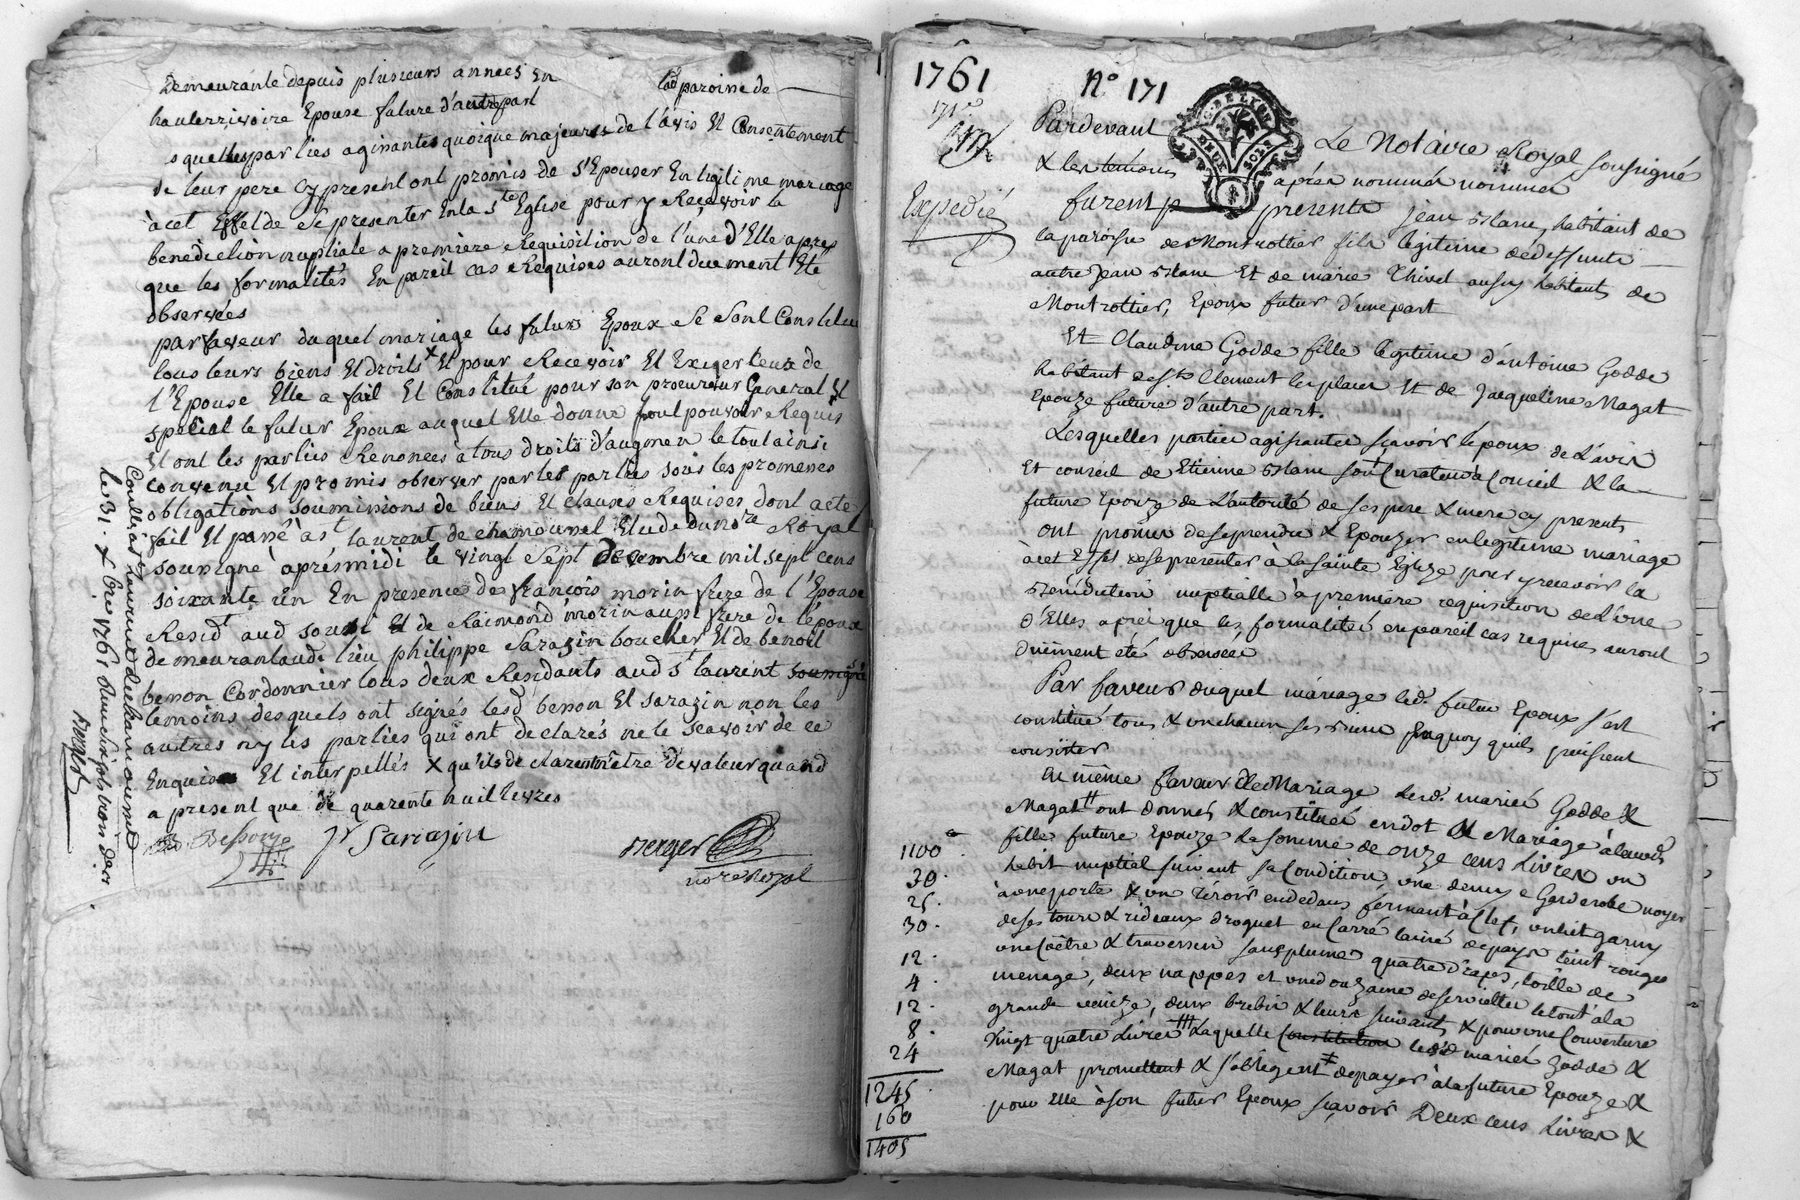 Demeurante depuis plusieurs années En la paroine de
haulerrivoire Epouse future d'autrepart
squellesparties aginantes quoique majeures de l'avis Et Consentement
de leur pere Cy present ont promis de s'Epouser En legitime mariage
à cet Effet de se presenter En la s.te Eglise pour y Recevoir la
benediction nuptiale a première Requisition de l'une d'Elle apres
que les formalités En pareil cas Requises auront duement Eté
observées
par faveur duquel mariage les futurs Epoux se sont Constitué
tous leurs biens Et droits x Et pour Recevoir Et Exiger ceux de
l'Epouse Elle a fait Et Constitué pour son procureur General Et
special le futur Epoux auquel Elle donne tout pouvoir Requis
Et ont les parties Renoncés à tous droits d'augmen le tout ainsi
convenu Et promis observer par les parties sous les promenes
obligations souminions de biens Et clauses Requises dont acte
fait Et pané à st laurent de chamounet Etude du nore Royal
sounigné aprésmidi le vingt sept decembre mil sept cens
soixante un En presence de françois morin frere de l'Epouse
Resid.t aud s Et de Raimond morin aussi frere de l'époux
demeurant aud. lieu philippe Sarazin boucher Et de benoit
benon Cordonnier tous deux Residants aud st laurent sounignés
temoins desquels ont signés lesd benon Et sarazin non les
autres ny les parties qui ont declarés ne le scavoir de ce
Enquis Et interpellés x qu'ils declarent n'etre de valeur quand
a present que de quarente huit livres
p Sarrazin
Berger
nore Royal
Conllé à st laurent de chamounet
le 31. Xbre 1761
Berger
1761
N° 171
171e
Expedié
Pardevant Le Notaire Royal soussigné
& les témoins après nommés nommés
furent p presents jean Blanc, habitant de
la paroisse de Montrottier fils légitime de deffunt
autre Jean Blanc Et de marie Thivel aussy habitants de
Montrottier, Epoux futur d'une part
Et Claudine Godde fille légitime d'antoine Godde
habitant de st Clement les places Et de Jacqueline Magat
Epouze future d'autre part.
Lesquelles parties agissantes sçavoir l'époux de L'avis
Et conseil de Etienne Blanc son Curateur à Conseil & la
future Epouze de L'autorité de ses pere & mere cy presents
ont promis de se prendre & Epouzer en légitime mariage
à cet Effet de se presenter à la sainte Eglize pour y recevoir la
Bénédiction nuptialle à première requisition de L'une
D'Elles après que les formalités en pareil cas requises auront
Duëment été observées
Par faveur duquel mariage led. futur Epoux s'est
constitué tous & un chacun ses biens En quoy quils puissent
consister
En même faveur de Mariage lesd. mariés Godde &
Magat ont donnés & constitués en dot & Mariage à laud.
fille future Epouze La somme de onze cens Livres un
habit nuptial suivant sa Condition, une demy Garderobe noyer
à une porte & un tiroir en dedans fermant à clef, un lit garny
de ses tours & rideaux droguet en Carré laine de pays teint rouge
une Coëtre & traversin sans plume quatre draps, toille de
menage, deux nappes et une douzaine de serviettes le tout à la
grande venize, deux brebis & leurs suivants & pour une Couverture
Vingt quatre Livres Laquelle Constitution lesd mariés Godde &
Magat promettent & s'obligent de payer à la future Epouze &
pour elle à son futur Epoux sçavoir Deux cens Livres &
1100
30
25
30
12
4
12
8
24
1245
160
1405